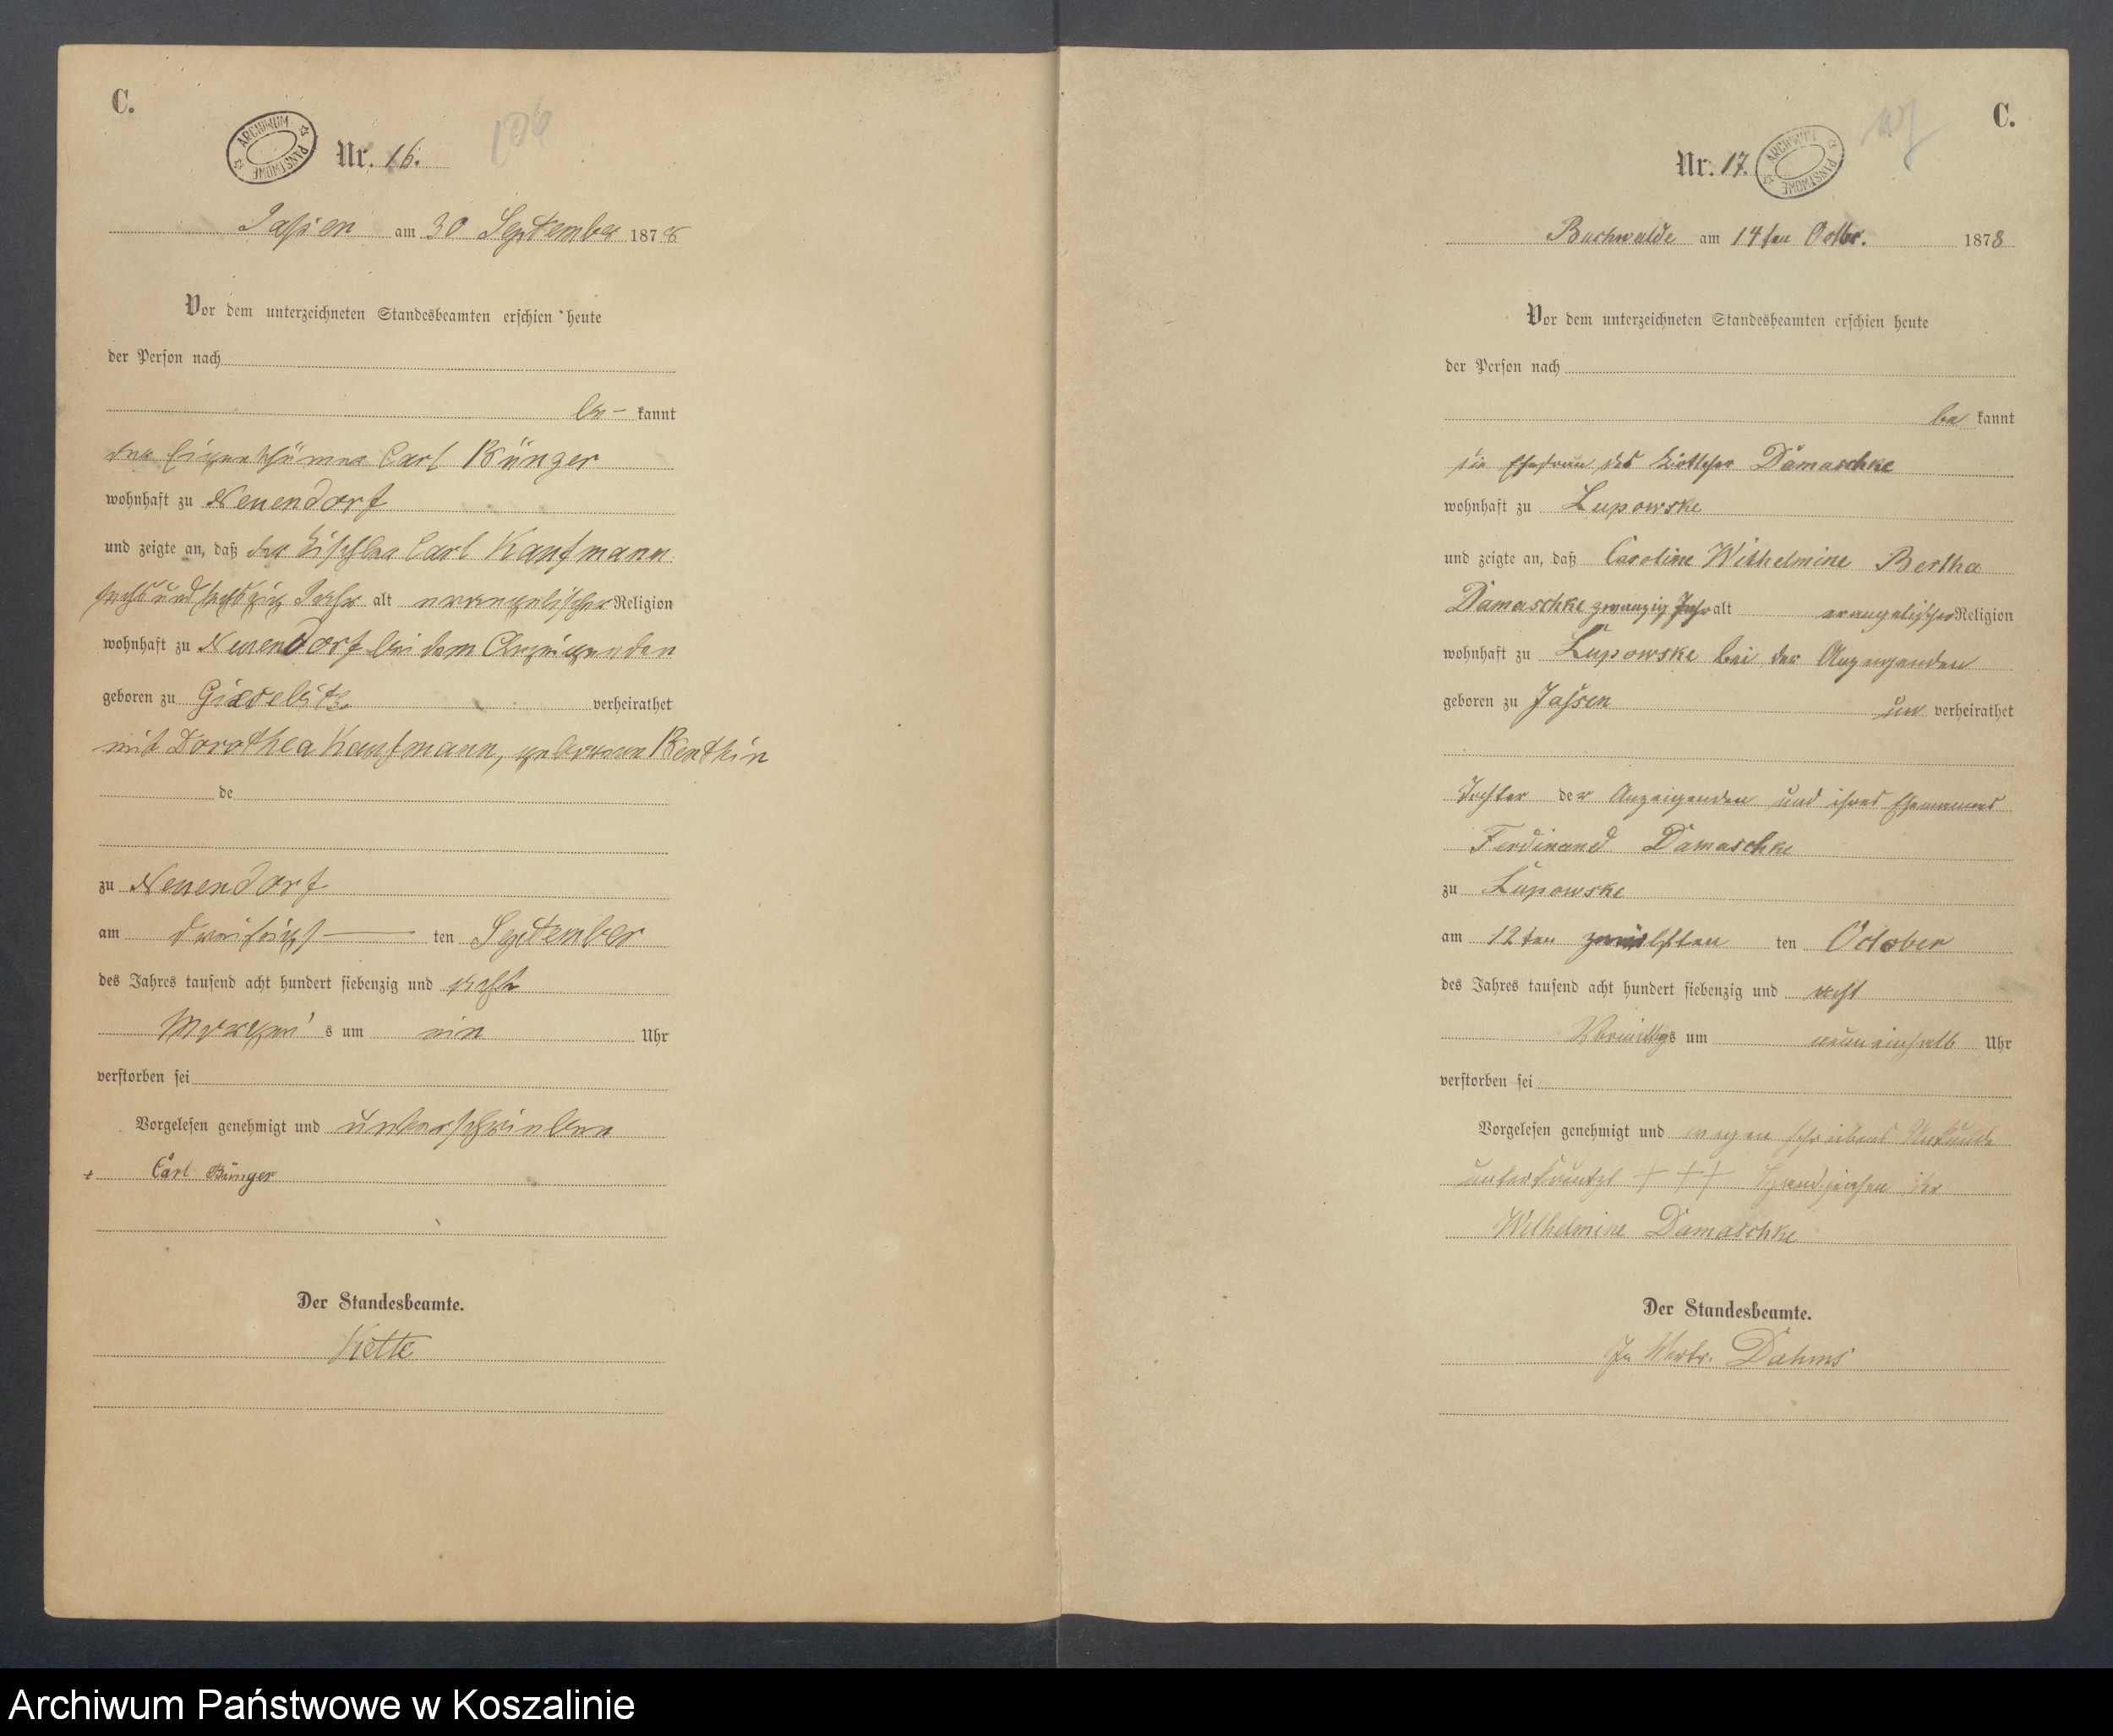 C.
ARCHIWUM PAŃSTWOWE
Nr. 16.
106
Jassen am 30 September 1878
Vor dem unterzeichneten Standesbeamten erschien heute
der Person nach
be- kannt
der Eigenthümer Carl Bünger
wohnhaft zu Neuendorf
und zeigte an, daß der Tischler Carl Kaufmann
sechsundsechszig Jahr alt evangelischer Religion
wohnhaft zu Neuendorf bei dem Anzeigenden
geboren zu verheirathet
mit Dorothea Kaufmann, geborene
de
zu Neuendorf
am dreißigst ten September
des Jahres tausend acht hundert siebenzig und acht
Morgen's um ein Uhr
verstorben sei
Vorgelesen genehmigt und unterschrieben
Carl Bünger
Der Standesbeamte.
Kette
C.
Nr. 17.
ARCHIWUM PAŃSTWOWE
Buchwalde am 14ten Octbr. 1878
Vor dem unterzeichneten Standesbeamten erschien heute
der Person nach
be kannt
die Ehefrau des Damaschke
wohnhaft zu Lupowske
und zeigte an, daß Caroline Wilhelmine Bertha
Damaschke zwanzig Jahr alt evangelischer Religion
wohnhaft zu Lupowske bei der Anzeigenden
geboren zu Jassen un verheirathet
Tochter der Anzeigenden und ihres Ehemannes
Ferdinand Damaschke
zu Lupowske
am 12ten zwölften ten October
des Jahres tausend acht hundert siebenzig und acht
Vormittags um neuneinhalb Uhr
verstorben sei
Vorgelesen genehmigt und wegen Schreibens Unkunde
unterkreuzt +++ Handzeichen der
Wilhelmine Damaschke
Der Standesbeamte.
In Vertr. Dahms
Archiwum Państwowe w Koszalinie